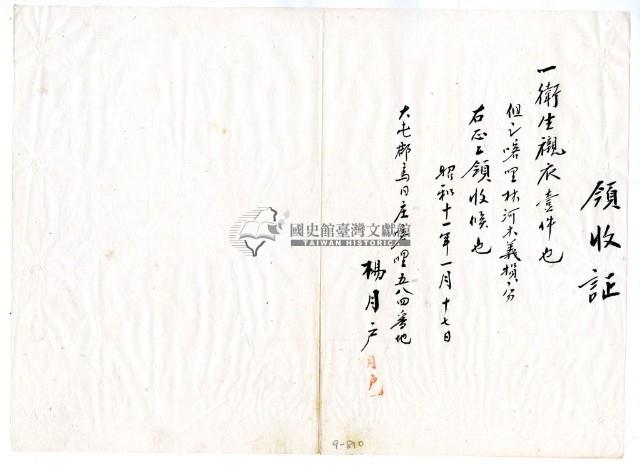 領收証
一衛生襯衣壹件也
但シ喀哩林河木義損分
右正ニ領收候也
昭和十一年一月十七日
大屯郡烏日庄喀哩五八四番地
楊月戶
月戶
國史館臺灣文獻館
TAIWAN HISTORICA
9-810